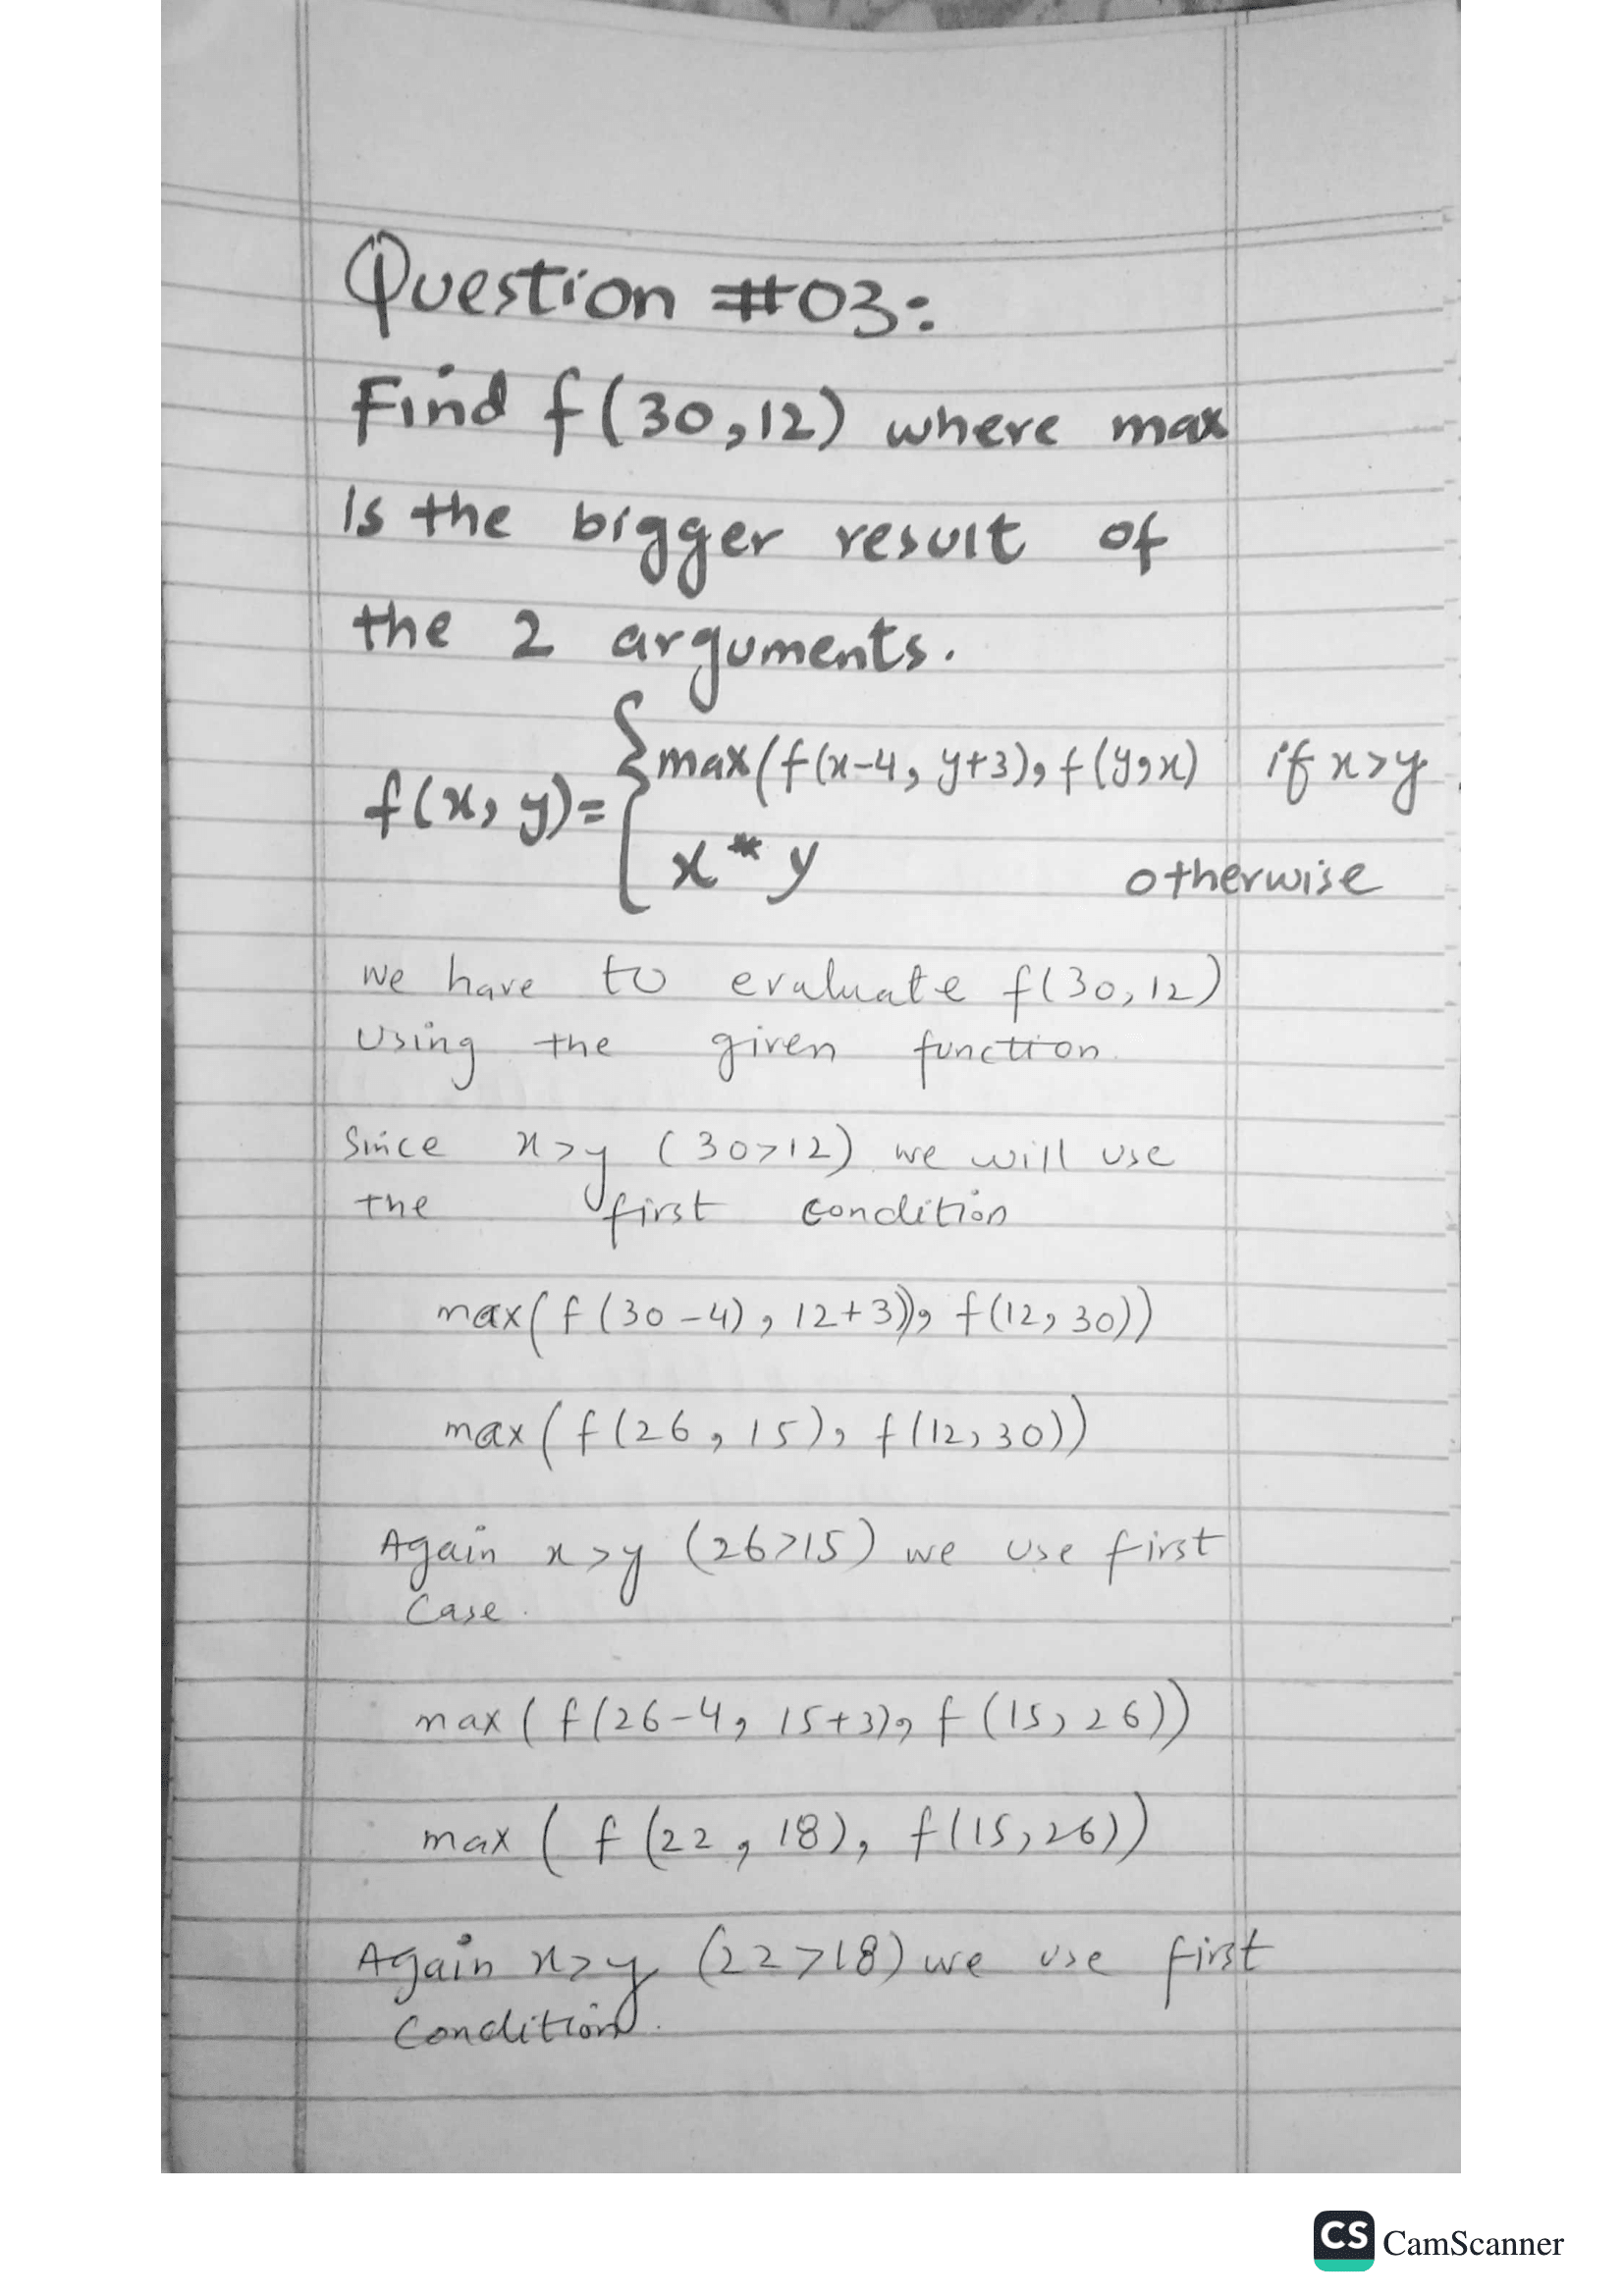 Question #03:
Find f(30,12) where max
is the bigger result of
the 2 arguments.
f(x, y)= { max(f(x-4, y+3), f(y,x) if x>y
x * y otherwise
We have to evaluate f(30,12)
Using the given function.
Since x>y (30>12) we will use
the first condition
max(f(30-4), 12+3)), f(12, 30))
max(f(26, 15), f(12, 30))
Again x>y (26>15) we use first
Case.
max(f(26-4, 15+3), f(15, 26))
max(f(22, 18), f(15, 26))
Again x>y (22>18) we use first
Condition.
CS CamScanner